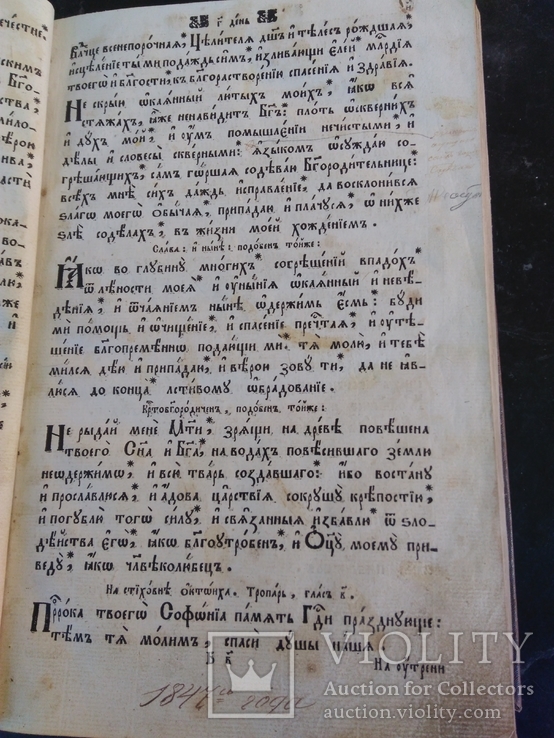 г҃ день
Влⷣчце всенепорочнаѧ, цѣлителѧ дш҃ъ и тѣлесъ рождшаѧ,
исцѣленїе ты ми подаждь симъ, изливающи єлей млⷭрдїѧ
твоегѡ и бл҃гости, къ бл҃горастворенїю спасенїѧ и здравїѧ.
Не скрыи ѡкаѧнный лютыхъ моихъ, ꙗкѡ всѧ
стѧжахъ, ꙗже ненавидитъ Бг҃ъ: плоть ѡсквернихъ
и духъ мой, и оумъ помышленїи нечистыми, и
дѣлы и словесы скверными: ѧзыкомъ ѡсуждаю со-
грѣшающихъ, самъ горшаѧ содѣваю Бг҃ородительнице:
всѣхъ мнѣ сихъ даждь исправленїе, да восклонивсѧ
ѕлагѡ моегѡ ѡбычаѧ, припадаю и плачусѧ, ѡ нихже
ѕлѣ содѣлахъ, въ жизни моей хожденїемъ.
Слава: и нынѣ: подобенъ тойже:
Ꙗкѡ во глубину многихъ согрѣшенїй впадохъ
ѿ лѣности моеѧ и оунынїѧ ѡкаѧнный и невѣ-
дѣнїѧ, и ѿчаѧнїемъ нынѣ ѡдержимъ єсмь: буди
ми помощь и ѡчищенїе, и спасенїе пречⷭтаѧ, и оутѣ-
шенїе бл҃гопременнѡ подающи ми, тѧ молю, и тебѣ
милсѧ дѣю и припадаю, и вѣрою зову ти, да не ꙗв-
люсѧ до конца льстивому ѡбрадованїе.
Крⷭтобг҃ородиченъ, подобенъ тойже:
Не рыдай мене Мт҃и, зрѧщи на древѣ повѣшена
твоего Сн҃а и Бг҃а, на водахъ повѣсившаго землю
неѡдержимѡ, и всю тварь создавшаго: ибо востану
и прославлюсѧ, и адова царствїѧ сокрушу крѣпостїю,
и погублю тогѡ силу, и свѧзанныѧ избавлю ѿ ѕло-
дѣйства єгѡ, ꙗкѡ бл҃гоутробенъ, и Оц҃у моему при-
веду, ꙗкѡ чл҃вѣколюбецъ.
На стїховнѣ октѡиха. Тропарь, гласъ в҃.
Прⷪрока твоегѡ Софонїа память Гдⷭи празднующе:
тѣмъ тѧ молимъ, спаси душы нашѧ.
Б҃ в҃
На оутрени
года
VIOLITY
Auction for Collectors
auction.violity.com